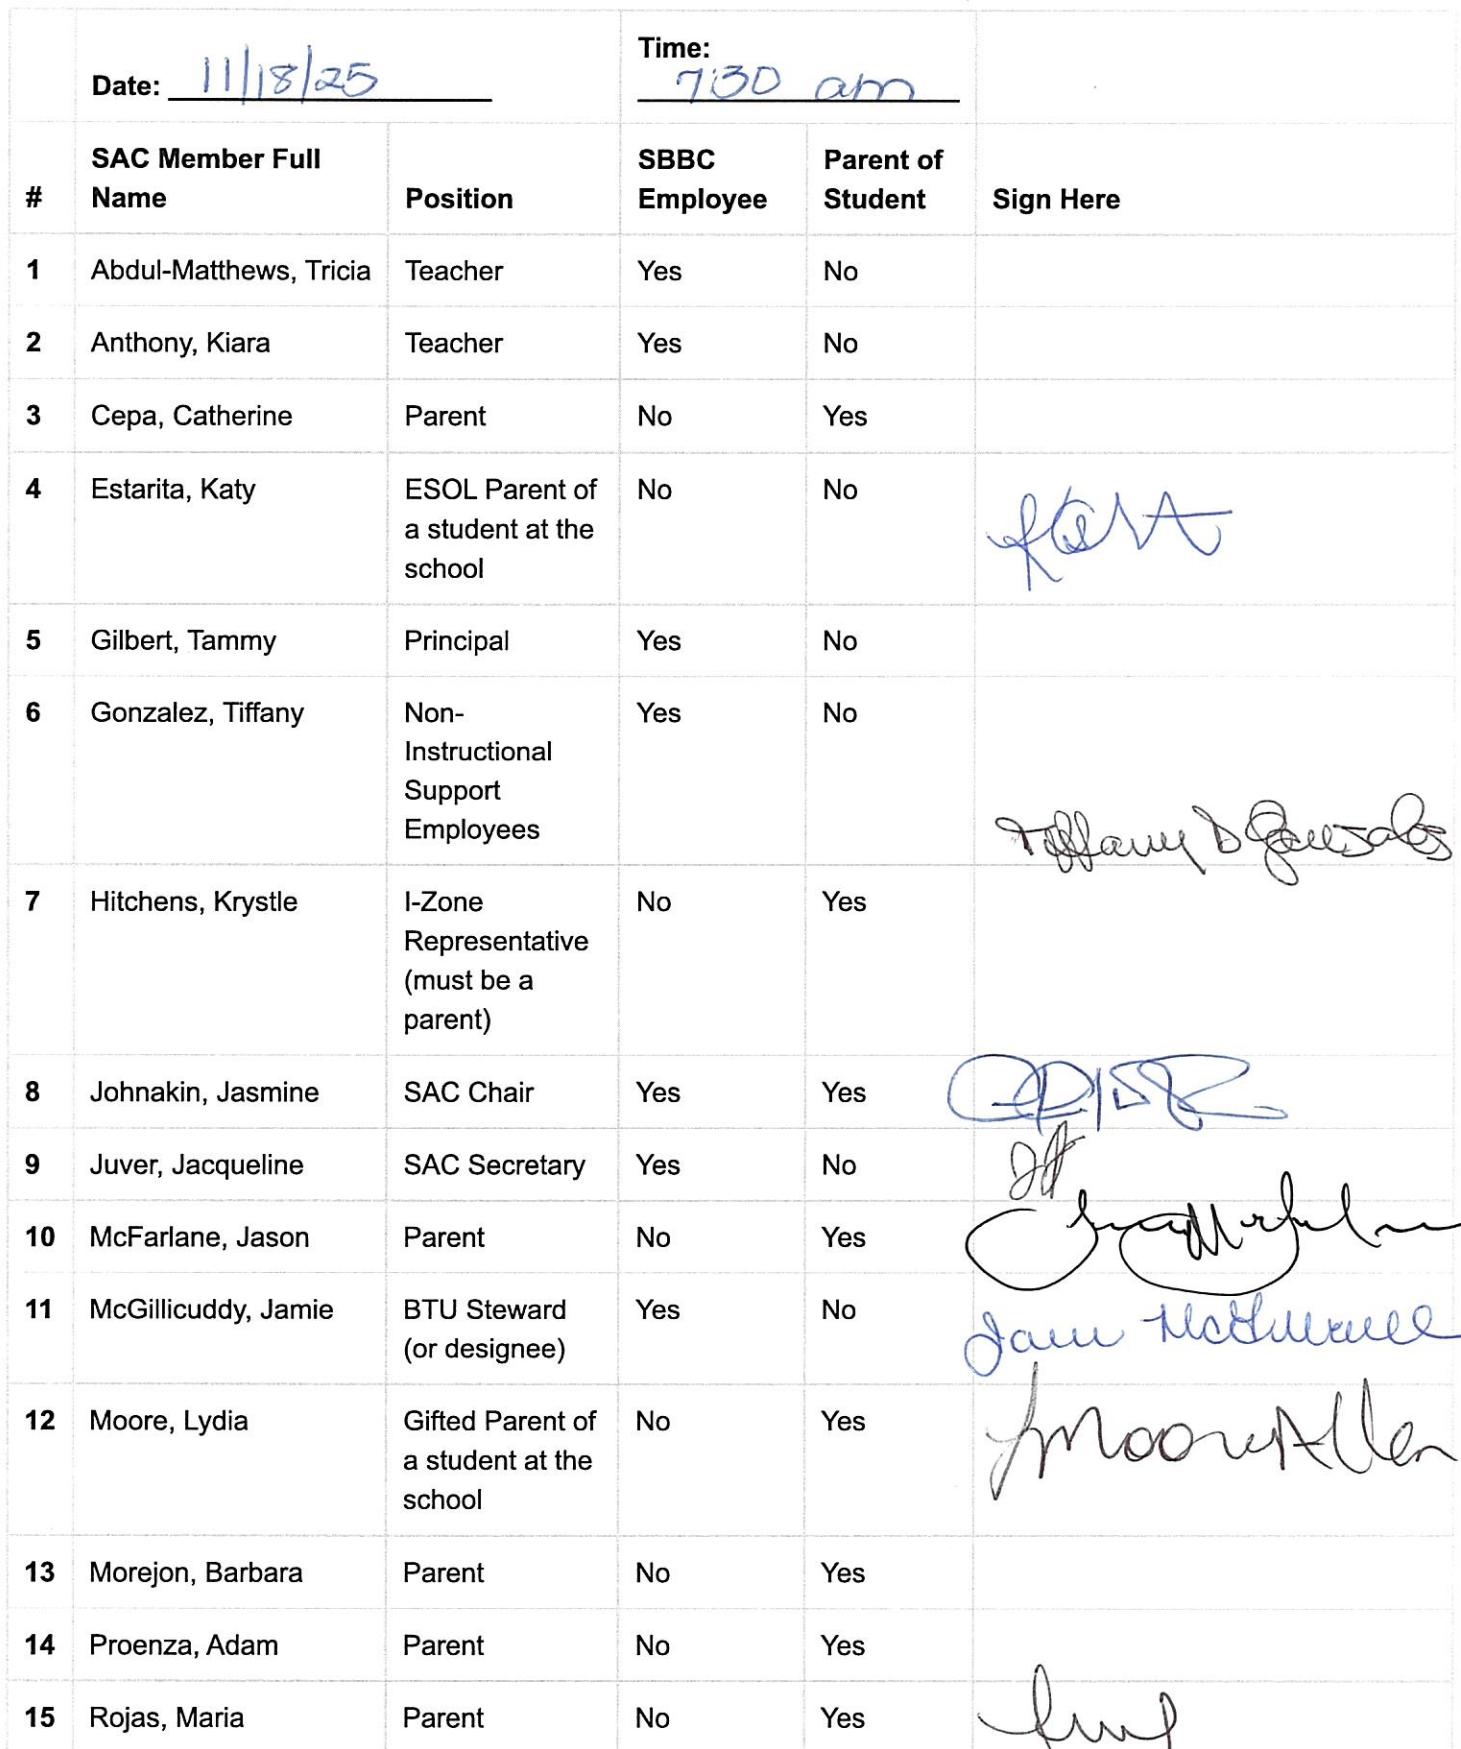 Date: 11/18/25
Time:
7:30 am
# SAC Member Full Name Position SBBC Employee Parent of Student Sign Here
1 Abdul-Matthews, Tricia Teacher Yes No
2 Anthony, Kiara Teacher Yes No
3 Cepa, Catherine Parent No Yes
4 Estarita, Katy ESOL Parent of No No
a student at the
school
5 Gilbert, Tammy Principal Yes No
6 Gonzalez, Tiffany Non- Yes No
Instructional
Support
Employees
Tiffany D Gonzalez
7 Hitchens, Krystle I-Zone No Yes
Representative
(must be a
parent)
8 Johnakin, Jasmine SAC Chair Yes Yes
9 Juver, Jacqueline SAC Secretary Yes No
10 McFarlane, Jason Parent No Yes
11 McGillicuddy, Jamie BTU Steward Yes No
(or designee)
12 Moore, Lydia Gifted Parent of No Yes LMooreAllen
a student at the
school
13 Morejon, Barbara Parent No Yes
14 Proenza, Adam Parent No Yes
15 Rojas, Maria Parent No Yes